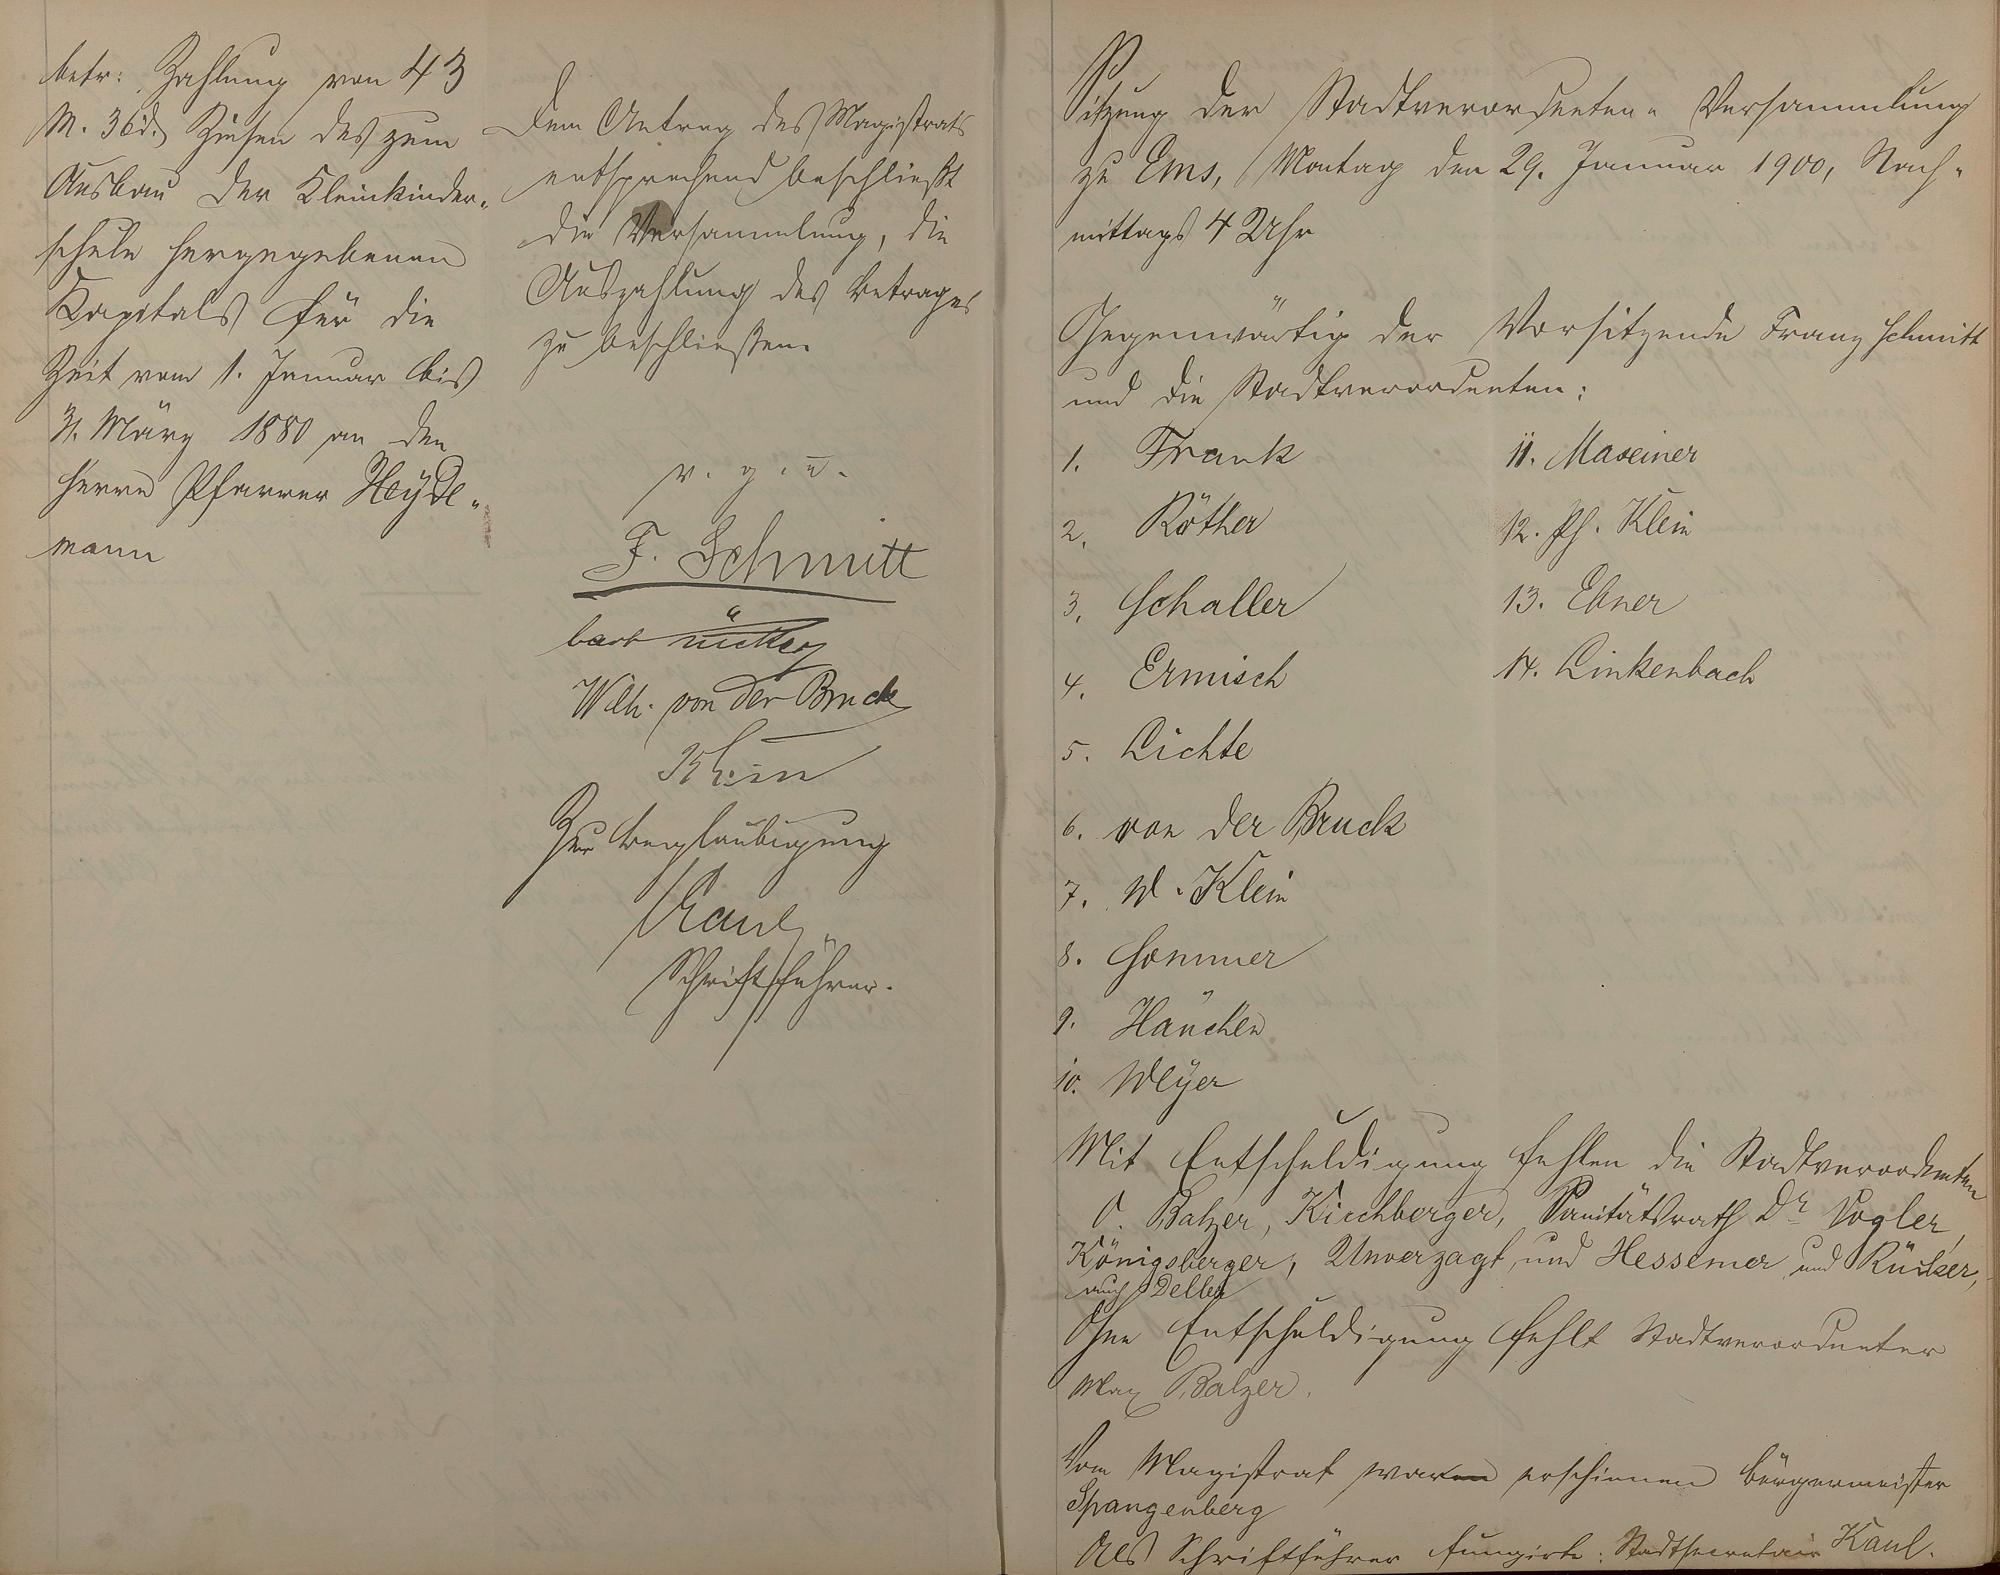 betr: Zahlung von 43
M. 36 d. Zinsen des zum
Ausbau der Kleinkinder-
schule hergegebenen
Kapitals für die
Zeit vom 1. Januar bis
31. März 1880 an den
Herrn Pfarrer Heyde-
mann
Dem Antrag des Magistrats
entsprechend beschließt
die Versammlung, die
Auszahlung des Betrages
zu beschließen.
v. g. u.
F. Schmitt
Wilh. von der Bruck
Klein
Zur Beglaubigung
Kaul,
Schriftführer.
Sitzung der Stadtverordneten-Versammlung
zu Ems, Montag den 29. Januar 1900, Nach-
mittags 4 Uhr
Gegenwärtig der Vorsitzende Franz Schmitt
und die Stadtverordneten:
1. Frank
2. Röther
3. Schaller
4. Ermisch
5. Lichte
6. von der Bruck
7. W. Klein
8. Sommer
9. Hänchen
10. Meyer
11. Maxeiner
12. Ph. Klein
13. Ebner
14. Linkenbach
Mit Entschuldigung fehlen die Stadtverordneten
O. Balzer, Kirchberger, Sanitätsrath Dr Vogler,
Königsberger, Unverzagt, und Hessemer und Rücker,
auch
Ohne Entschuldigung fehlt Stadtverordneter
Max Balzer.
Vom Magistrat war erschienen Bürgermeister
Spangenberg
Als Schriftführer fungirte: Stadtsecretair Kaul.